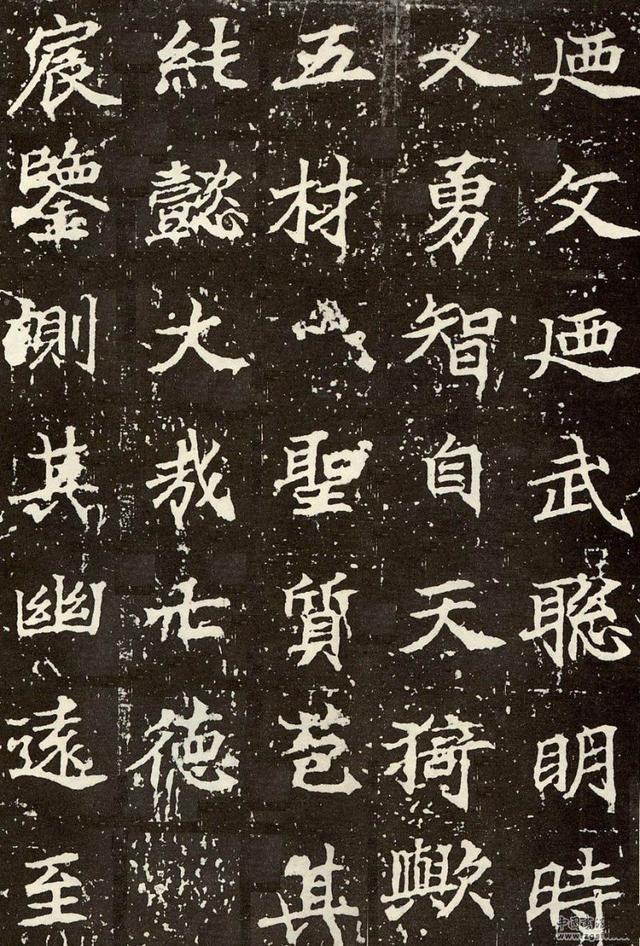 廼文廼武聦明時
乂勇智自天猗歟
五材聖質苞其
純懿大哉徳
宸鑒其幽遠至
中国书法